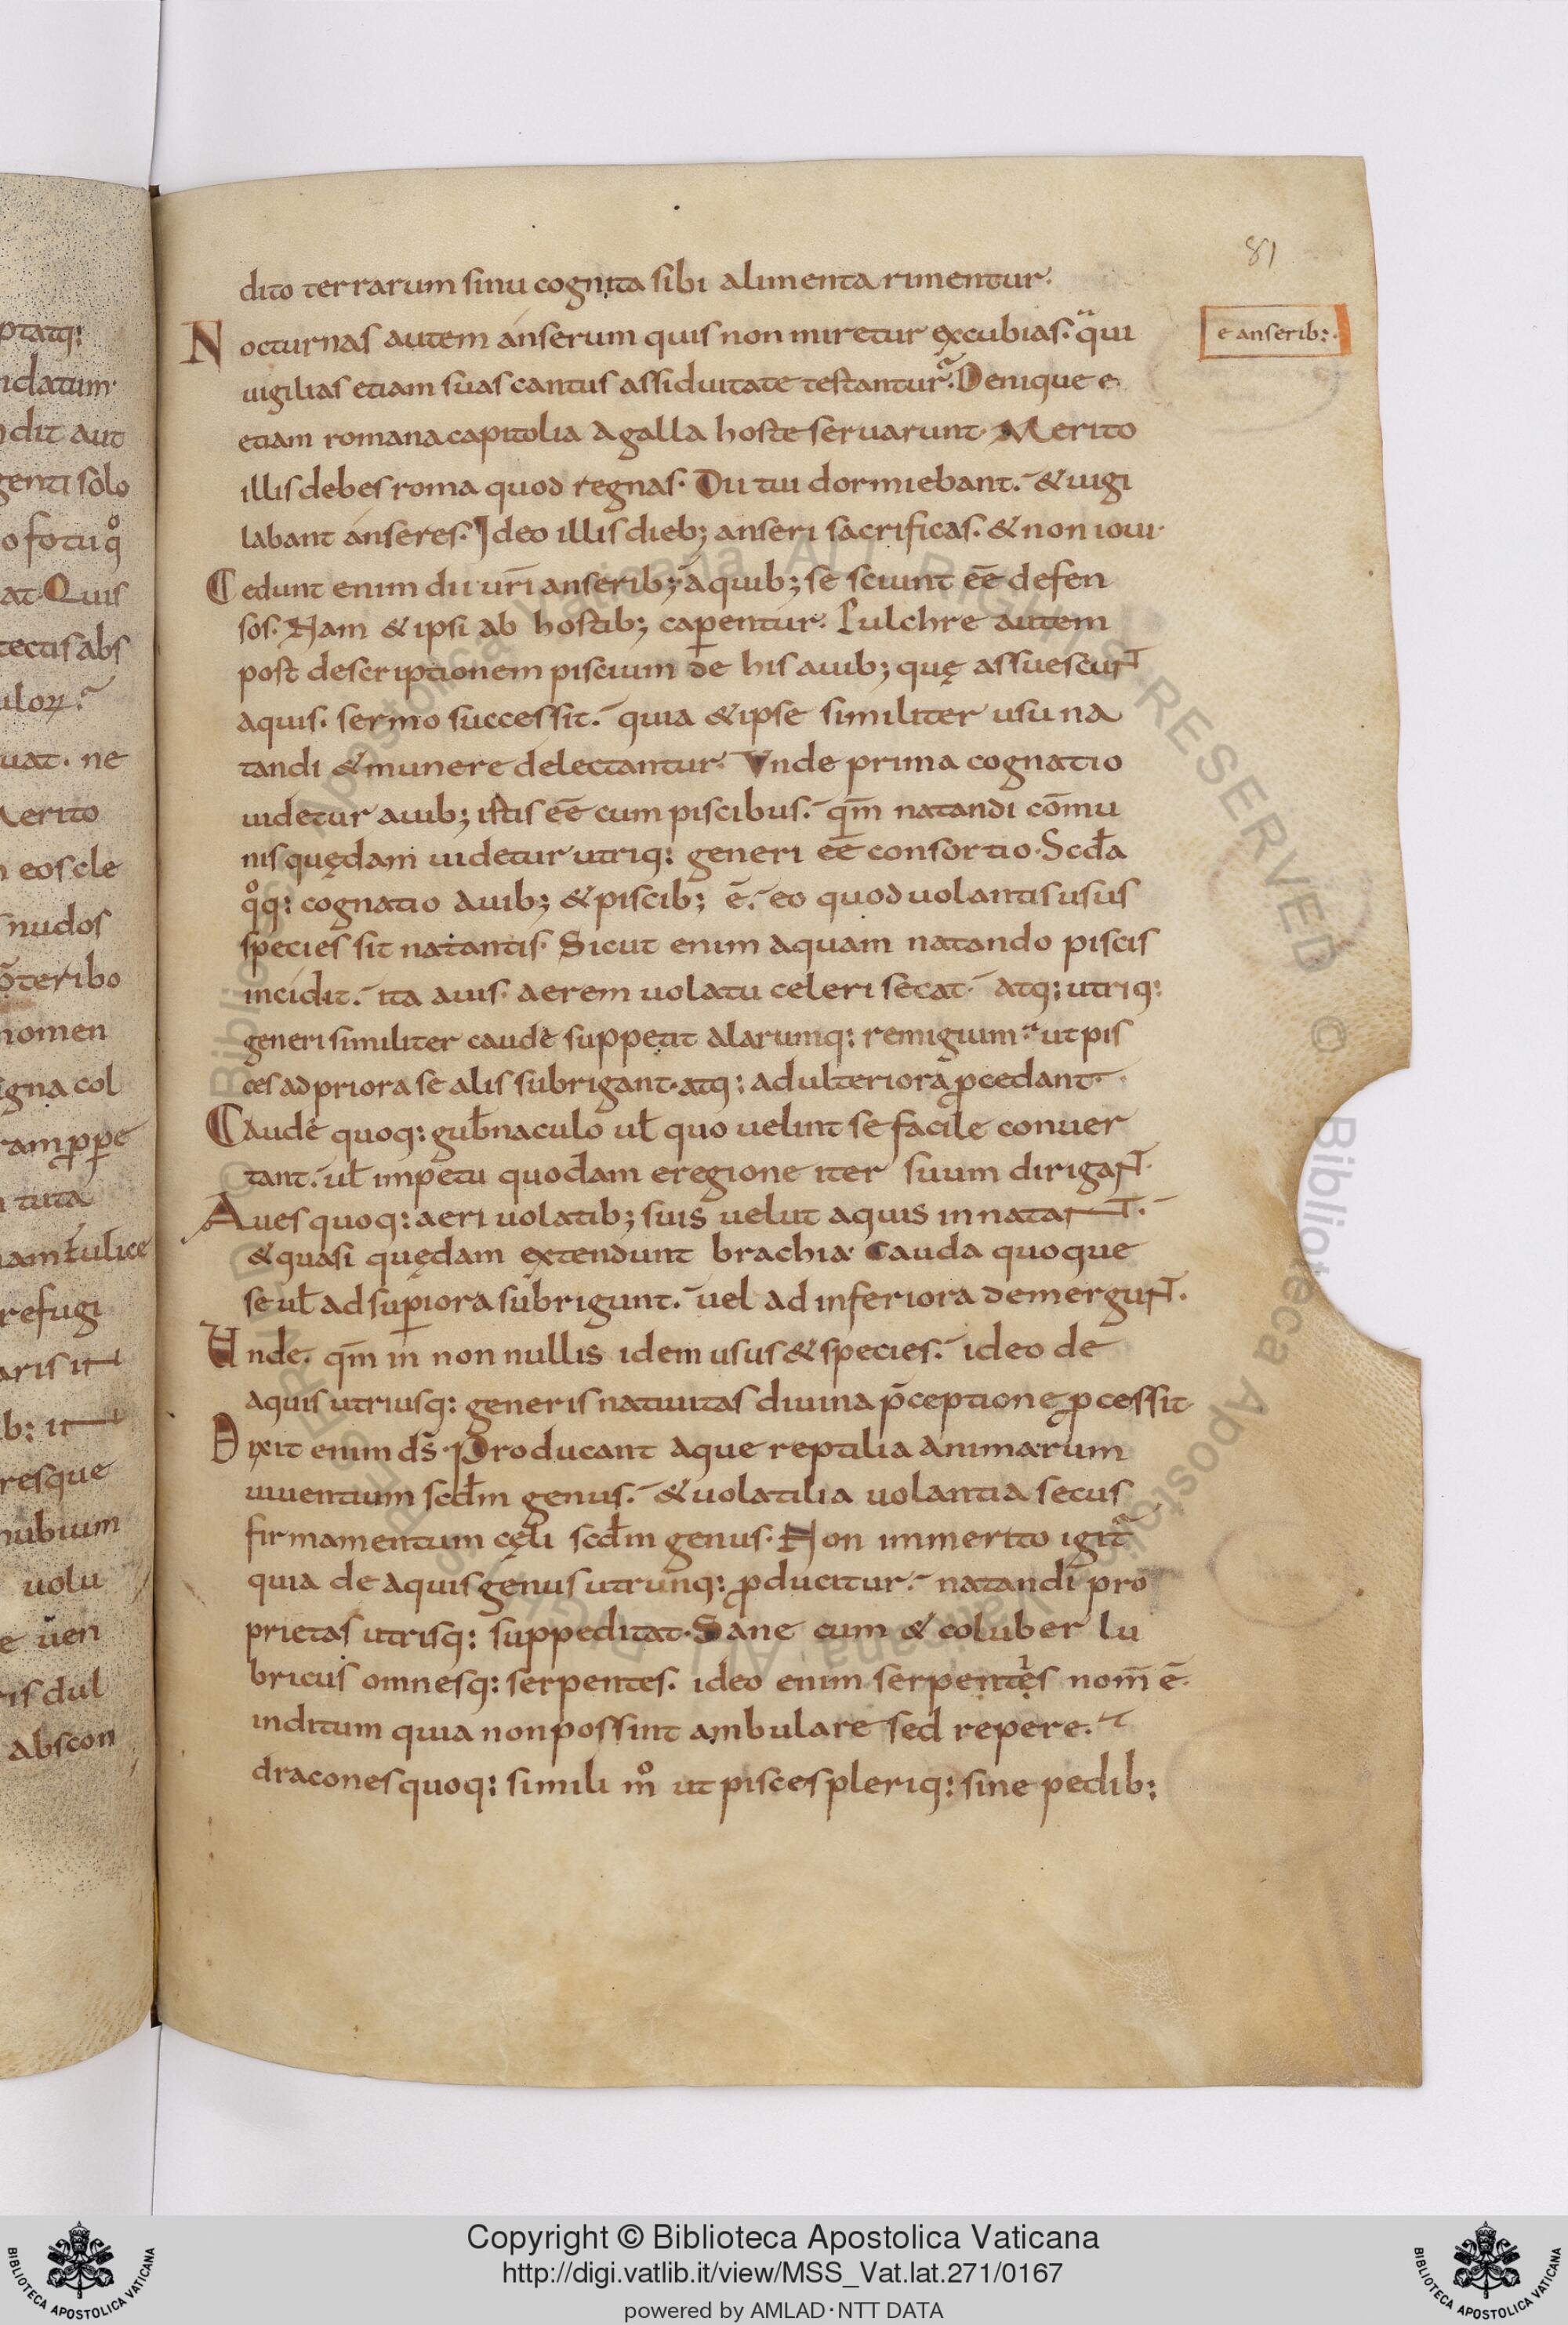 ptatq:
ndatum·
dit aut
genti solo
o fotu qͦ
at Quis
tectis abs
uloꝝ
uat. ne
Merito
eos cle
nudos
nomen
igna col
tuta
refugi
aris it
b: it
resque
nubium
uolu
uen
ris dul
abscon
81
dito terrarum sinu cognita sibi alimenta rimentur·
Nocturnas autem anserum quis non miretur excubias. qui
uigilias etiam suas cantus assiduitate testantur. Denique e
etiam romana capitolia a galla hoste seruarunt· Merito
illis debes roma quod regnas· Dii tui dormiebant. & uigi
labant anseres. Ideo illis dieb; anseri sacrificas. & non ioui·
Cedunt enim dii uri̅ anserib; a quib; se sciunt ee̅ defen
sos· Nam & ipsi ab hostib; caꝑentur. Pulchre autem
post descriptionem piscium de his auib; quę assuescunt
aquis. sermo successit. quia & ipse similiter usu na
tandi & munere delectantur· Vnde prima cognatio
uidetur auib; istis ee̅ cum piscibus. qm̅ natandi co̅mu
nis quędam uidetur utriq: generi ee̅ consortio· Scd̅a
qͦq: cognatio auib; & piscib; e̅. eo quod uolantis usus
species sit natantis· Sicut enim aquam natando piscis
incidit. ita auis· aerem uolatu celeri secat· atq; utriq:
generi similiter caude suppetit alarumq: remigium. ut pis
ces ad priora se alis subrigant· atq: ad ulteriora ꝓcedant·
Caude quoq: gub̅naculo ul̅ quo uelint se facile conuer
tant. ul̅ impetu quodam e regione iter suum dirigant·
Aues quoq: aeri uolatib; suis uelut aquis innatant.
& quasi quędam extendunt brachia· Cauda quoque
se ul̅ ad suꝑiora subrigunt. uel ad inferiora demergunt.
Unde. qm̅ in non nullis idem usus & species. ideo de
aquis utriusq: generis natiuitas diuina p̅ceptione ꝓcessit·
Dixit enim ds̅· Producant aque reptilia animarum
uiuentium scd̅m genus. & uolatilia uolantia secus
firmamentum cęli scd̅m genus· Non immerito igit
quia de aquis genus utrunq: ꝓducitur. natandi pro
prietas utrisq: suppeditat· Sane cum & coluber lu
bricus omnesq: serpentes. ideo enim serpentẹs nom̅ e̅·
inditum quia non possint ambulare sed repere.
dracones quoq: simili mͦ ut pisces pleriq: sine pedib:
e anserib:·
Copyright © Biblioteca Apostolica Vaticana
http://digi.vatlib.it/view/MSS_Vat.lat.271/0167
powered by AMLAD·NTT DATA
BIBLIOTECA APOSTOLICA VATICANA
BIBLIOTECA APOSTOLICA VATICANA